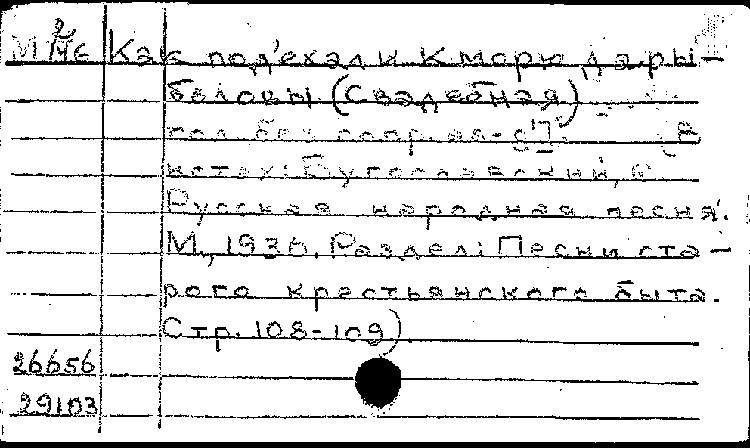 М 2Ме Как под'ехали к морю да ры-
боловы. (Свадебная)
пол. без сопр.
нотах: Бугославский, С.
Русская народная песня.
М., 1936. Раздел: Песни ста-
рого крестьянского быта.
Стр. 108-109).
26656
29103